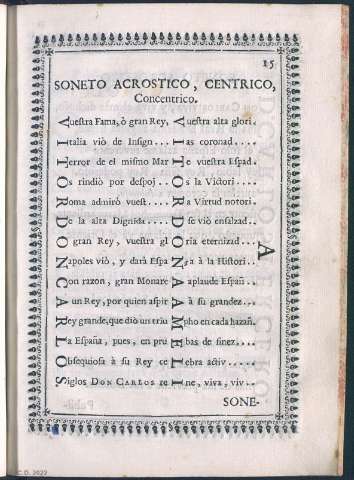 15
SONETO ACROSTICO, CENTRICO,
Concentrico.
Vuestra Fama, ò gran Rey, Vuestra alta glori..
Italia viò de Insign... Ias coronad....
Terror de el mismo Mar Te vuestra Espad.
Os rindiò por despoj.. Os la Victori...
Roma admirò vuest... Ra Virtud notori.
De la alta Dignida... D se viò ensalzad..
O gran Rey, vuestra gl Oria eternizad...
Napoles viò, y darà Espa Ña à la Histori.. A
Con razon, gran Monarc A aplaude Españ...
A un Rey, por quien aspir A à su grandez...
Rey grande, que diò un triu Mpho en cada hazañ.
La España, pues, en pru Ebas de finez...
Obsequiosa à su Rey ce Lebra activ....
Siglos DON CARLOS re Ine, viva, viv...
SONE-
C.D. 2022